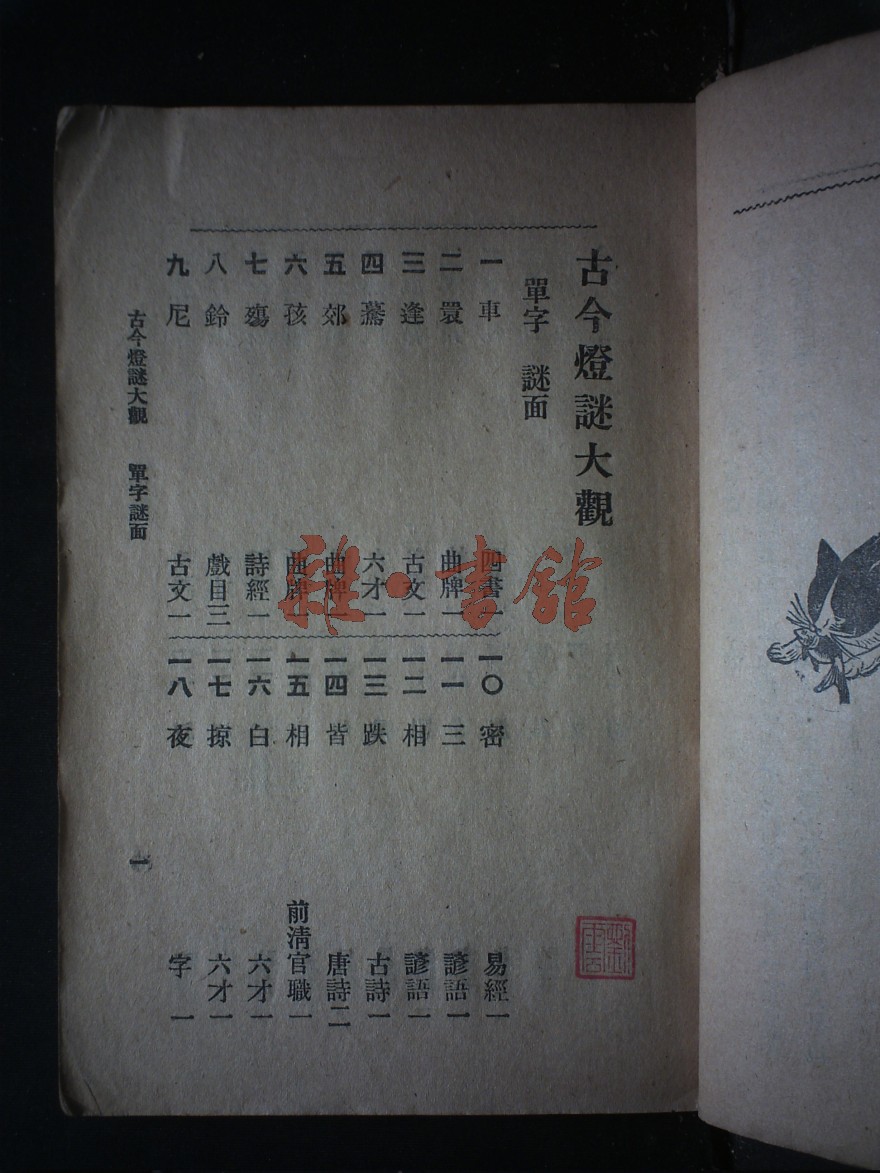 古今燈謎大觀
單字 謎面
一 車 四書一
二 睘 曲牌一
三 逢 古文一
四 驀 六才一
五 郊 曲牌一
六 孩 曲牌一
七 殤 詩經一
八 鈴 戲目三
九 尼 古文一
一〇 密 易經一
一一 三 諺語一
一二 相 諺語一
一三 跌 古詩一
一四 皆 唐詩二
一五 相 前淸官職一
一六 白 六才一
一七 掠 六才一
一八 夜 字一
古今燈謎大觀 單字謎面
一
雜·書館